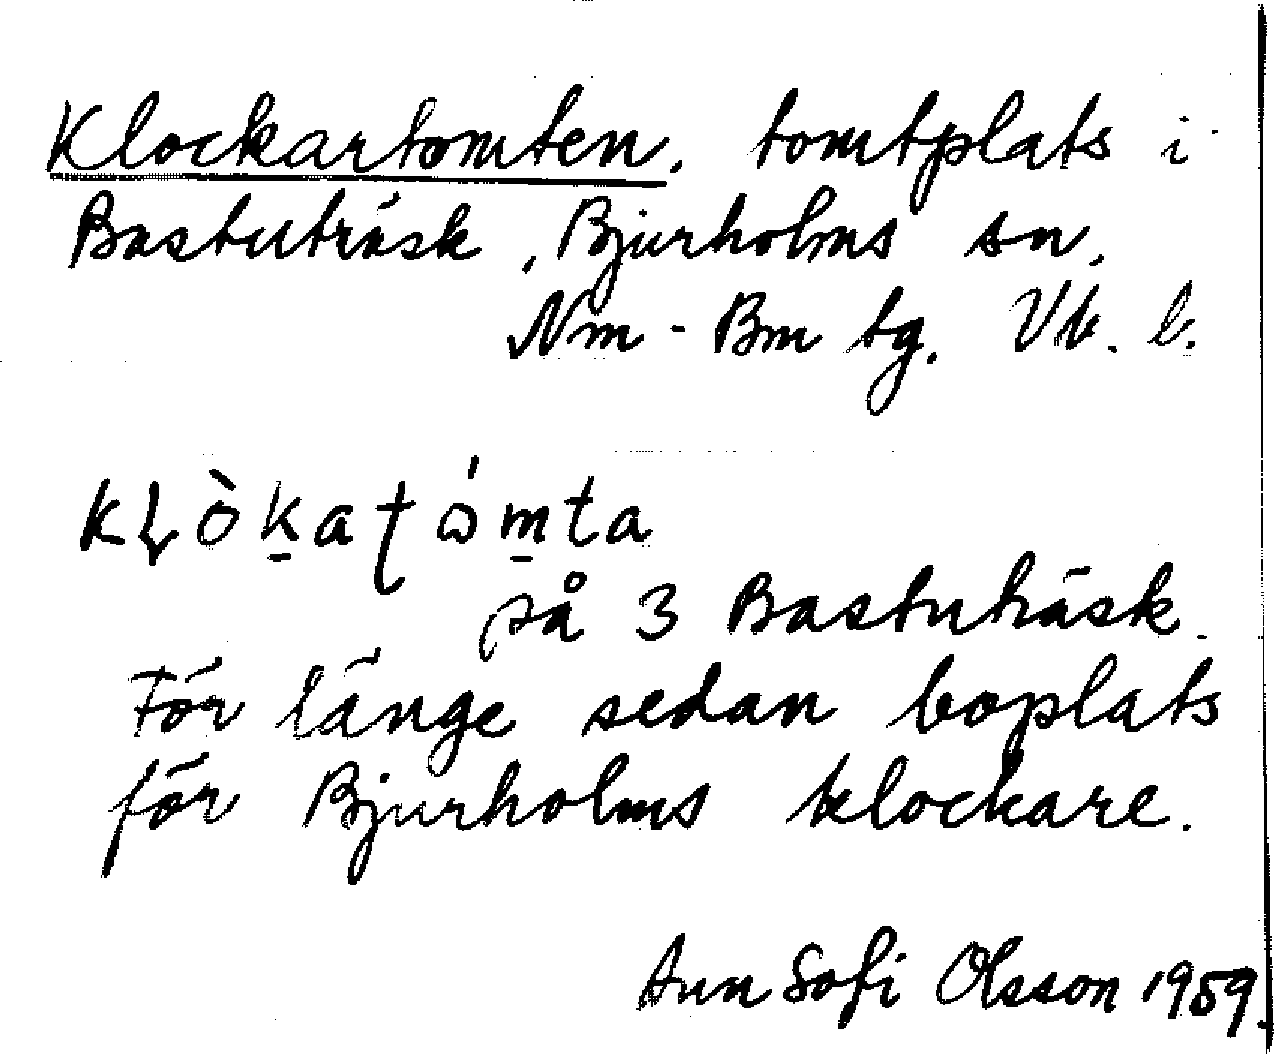 Klockartomten, tomtplats i
Bastuträsk, Bjurholms sn,
Nm-Bm tg. Vb. l.
på 3 Bastuträsk.
För länge sedan boplats
för Bjurholms klockare.
Ann Sofi Olsson 1959.